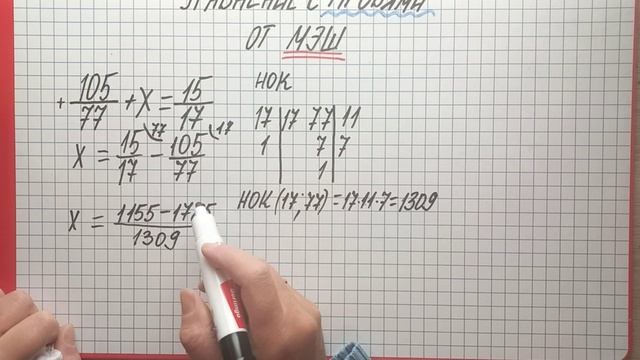 УРАВНЕНИЕ С ДРОБЯМИ
ОТ МЭШ
+ 105/77 + X = 15/17
X = 15/17 \77 - 105/77 \17
X = 1155-17/1309
НОК
17 | 17 77 | 11
1 | 7 | 7
1
НОК (17; 77) = 17·11·7 = 1309